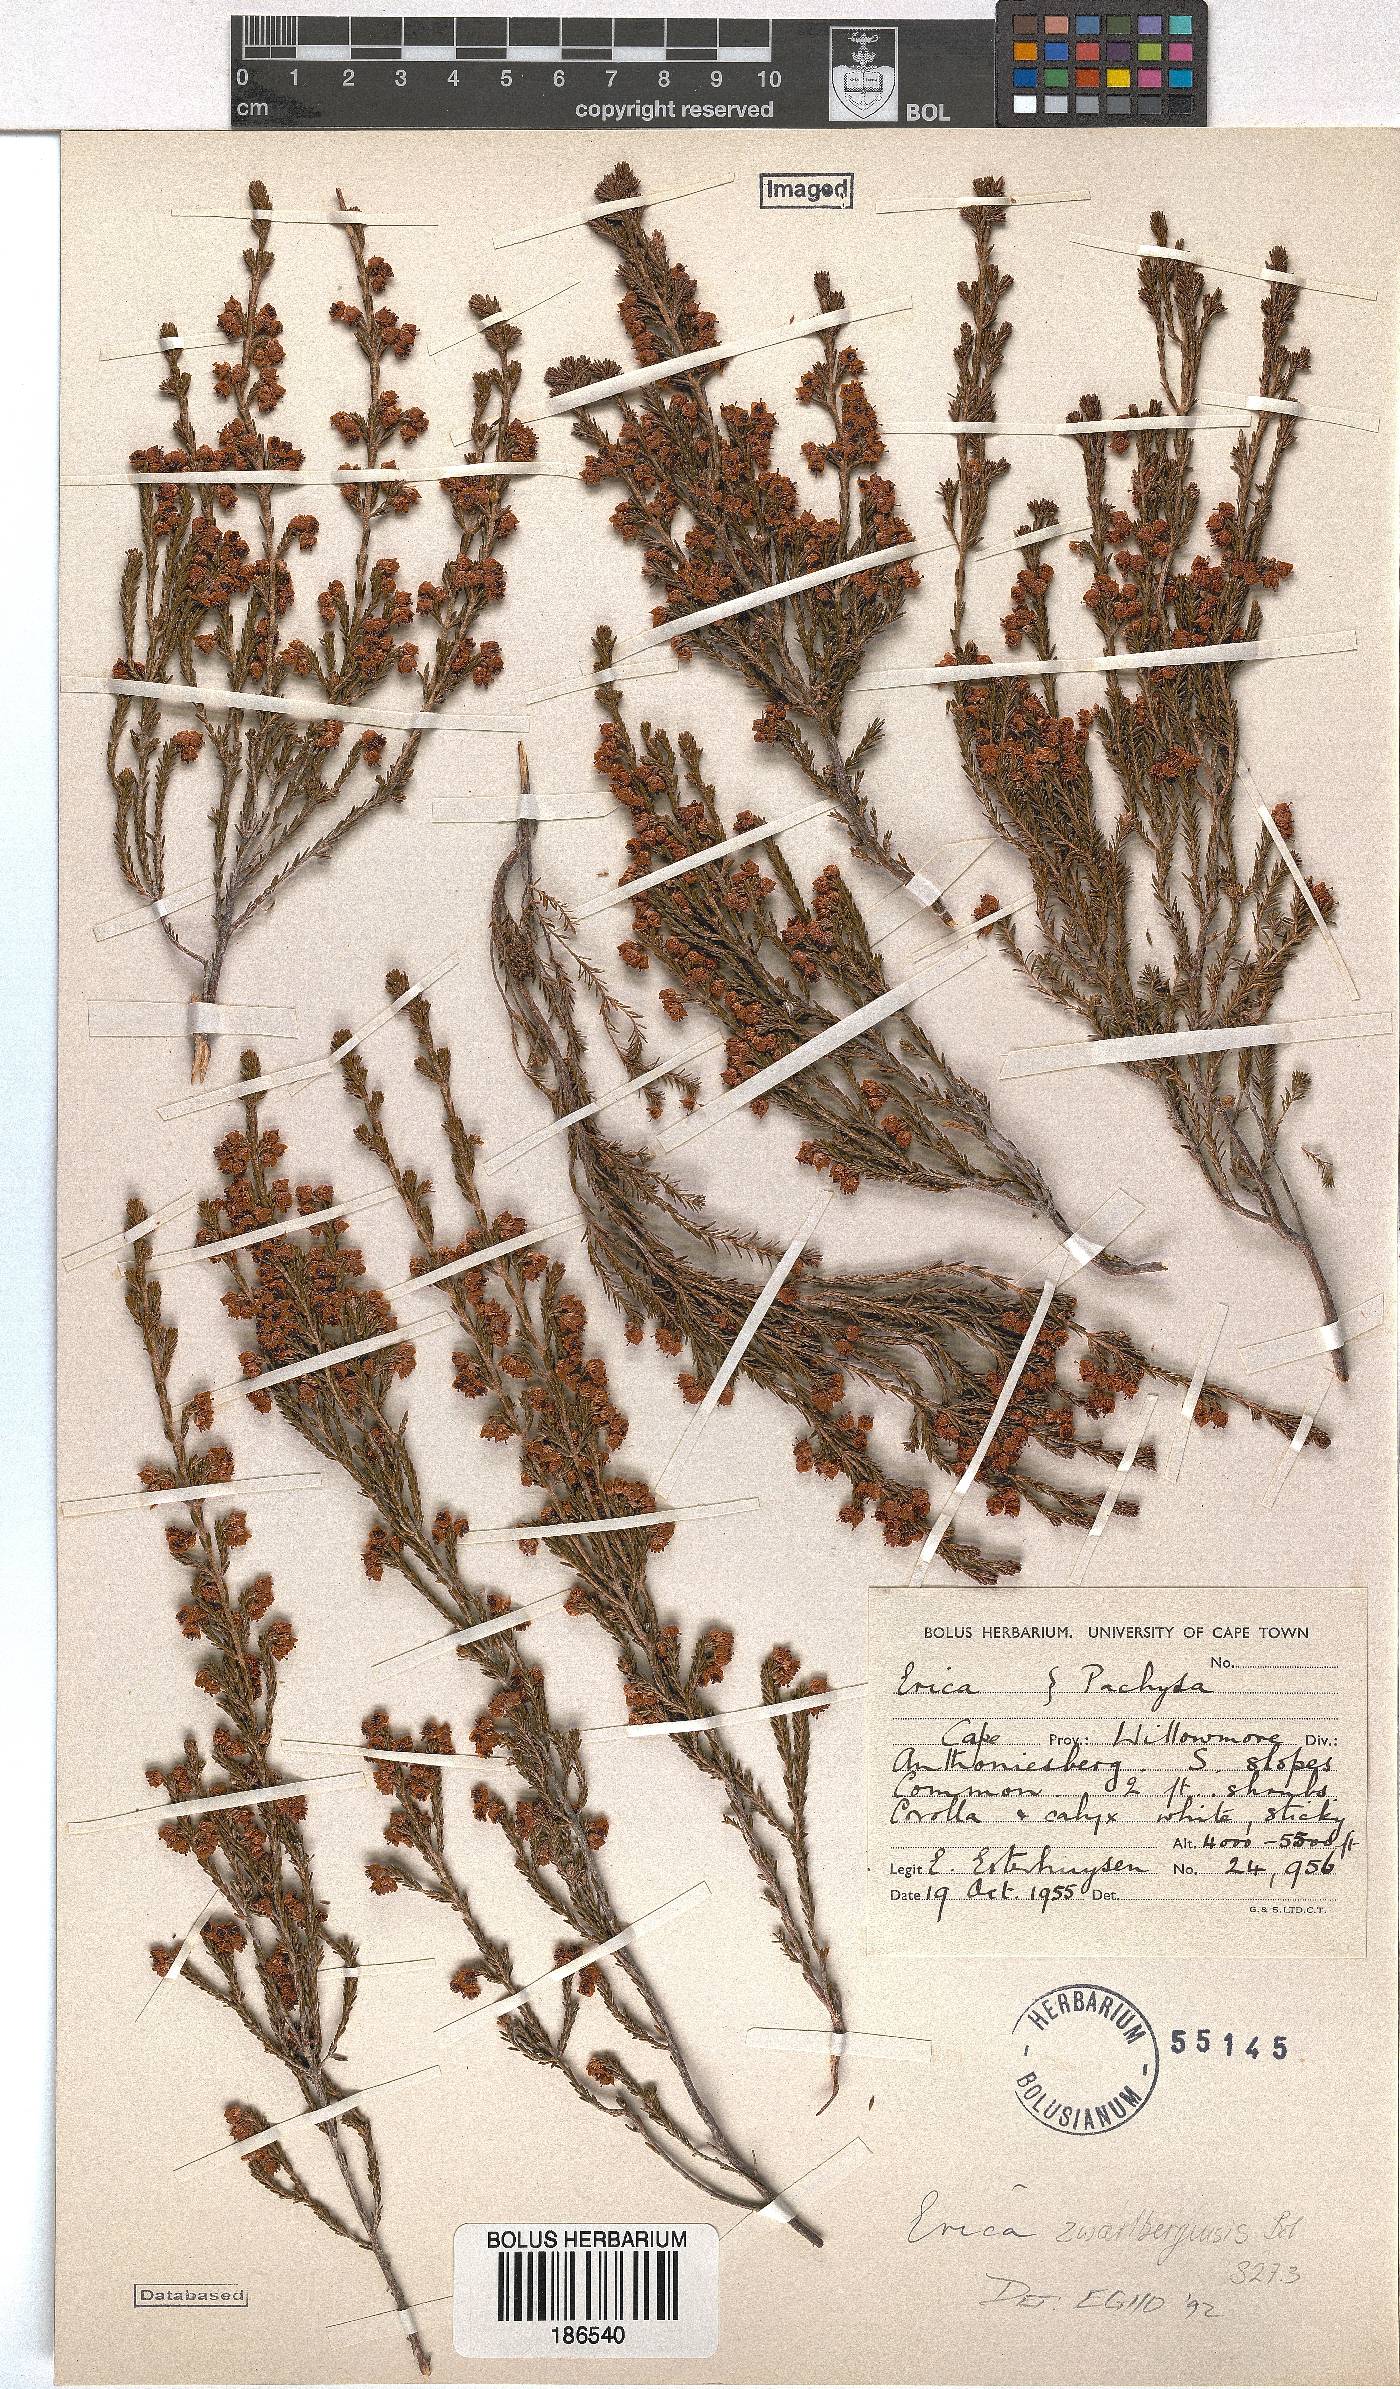 0 1 2 3 4 5 6 7 8 9 10
cm copyright reserved BOL
Imaged
BOLUS HERBARIUM. UNIVERSITY OF CAPE TOWN
No.
Erica § Pachysa
Cape Prov.: Willowmore Div.:
Anthoniesberg. S. slopes
Common. 2 ft. shrubs
Corolla & calyx white, sticky
Alt. 4000 - 5500 ft
Legit E. Esterhuysen No. 24,956
Date 19 Oct. 1955 Det.
G. & S. LTD. C.T.
HERBARIUM
BOLUSIANUM
55145
Erica zwartbergensis Bol
Det: EGHO '92
BOLUS HERBARIUM
186540
Databased